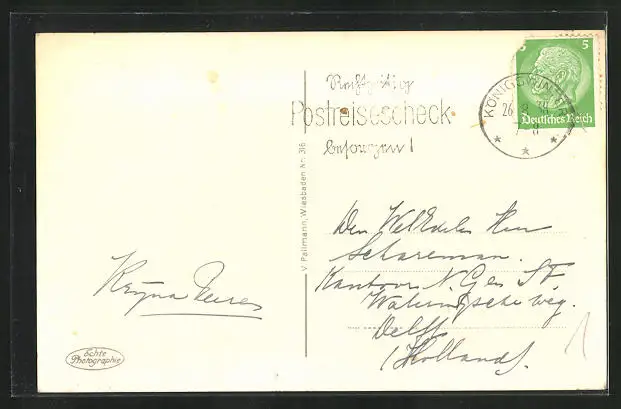 Rechtzeitig
Postreisescheck
besorgen!
KÖNIGSWINTER
26 8
5
Deutsches Reich
V. Pallmann, Wiesbaden Nr. 316
Den WelEdelen Heer
Schareman.
Kantoor N. G. en S. F.
Wateringsche weg.
Delft
(Holland).
Echte
Photographie